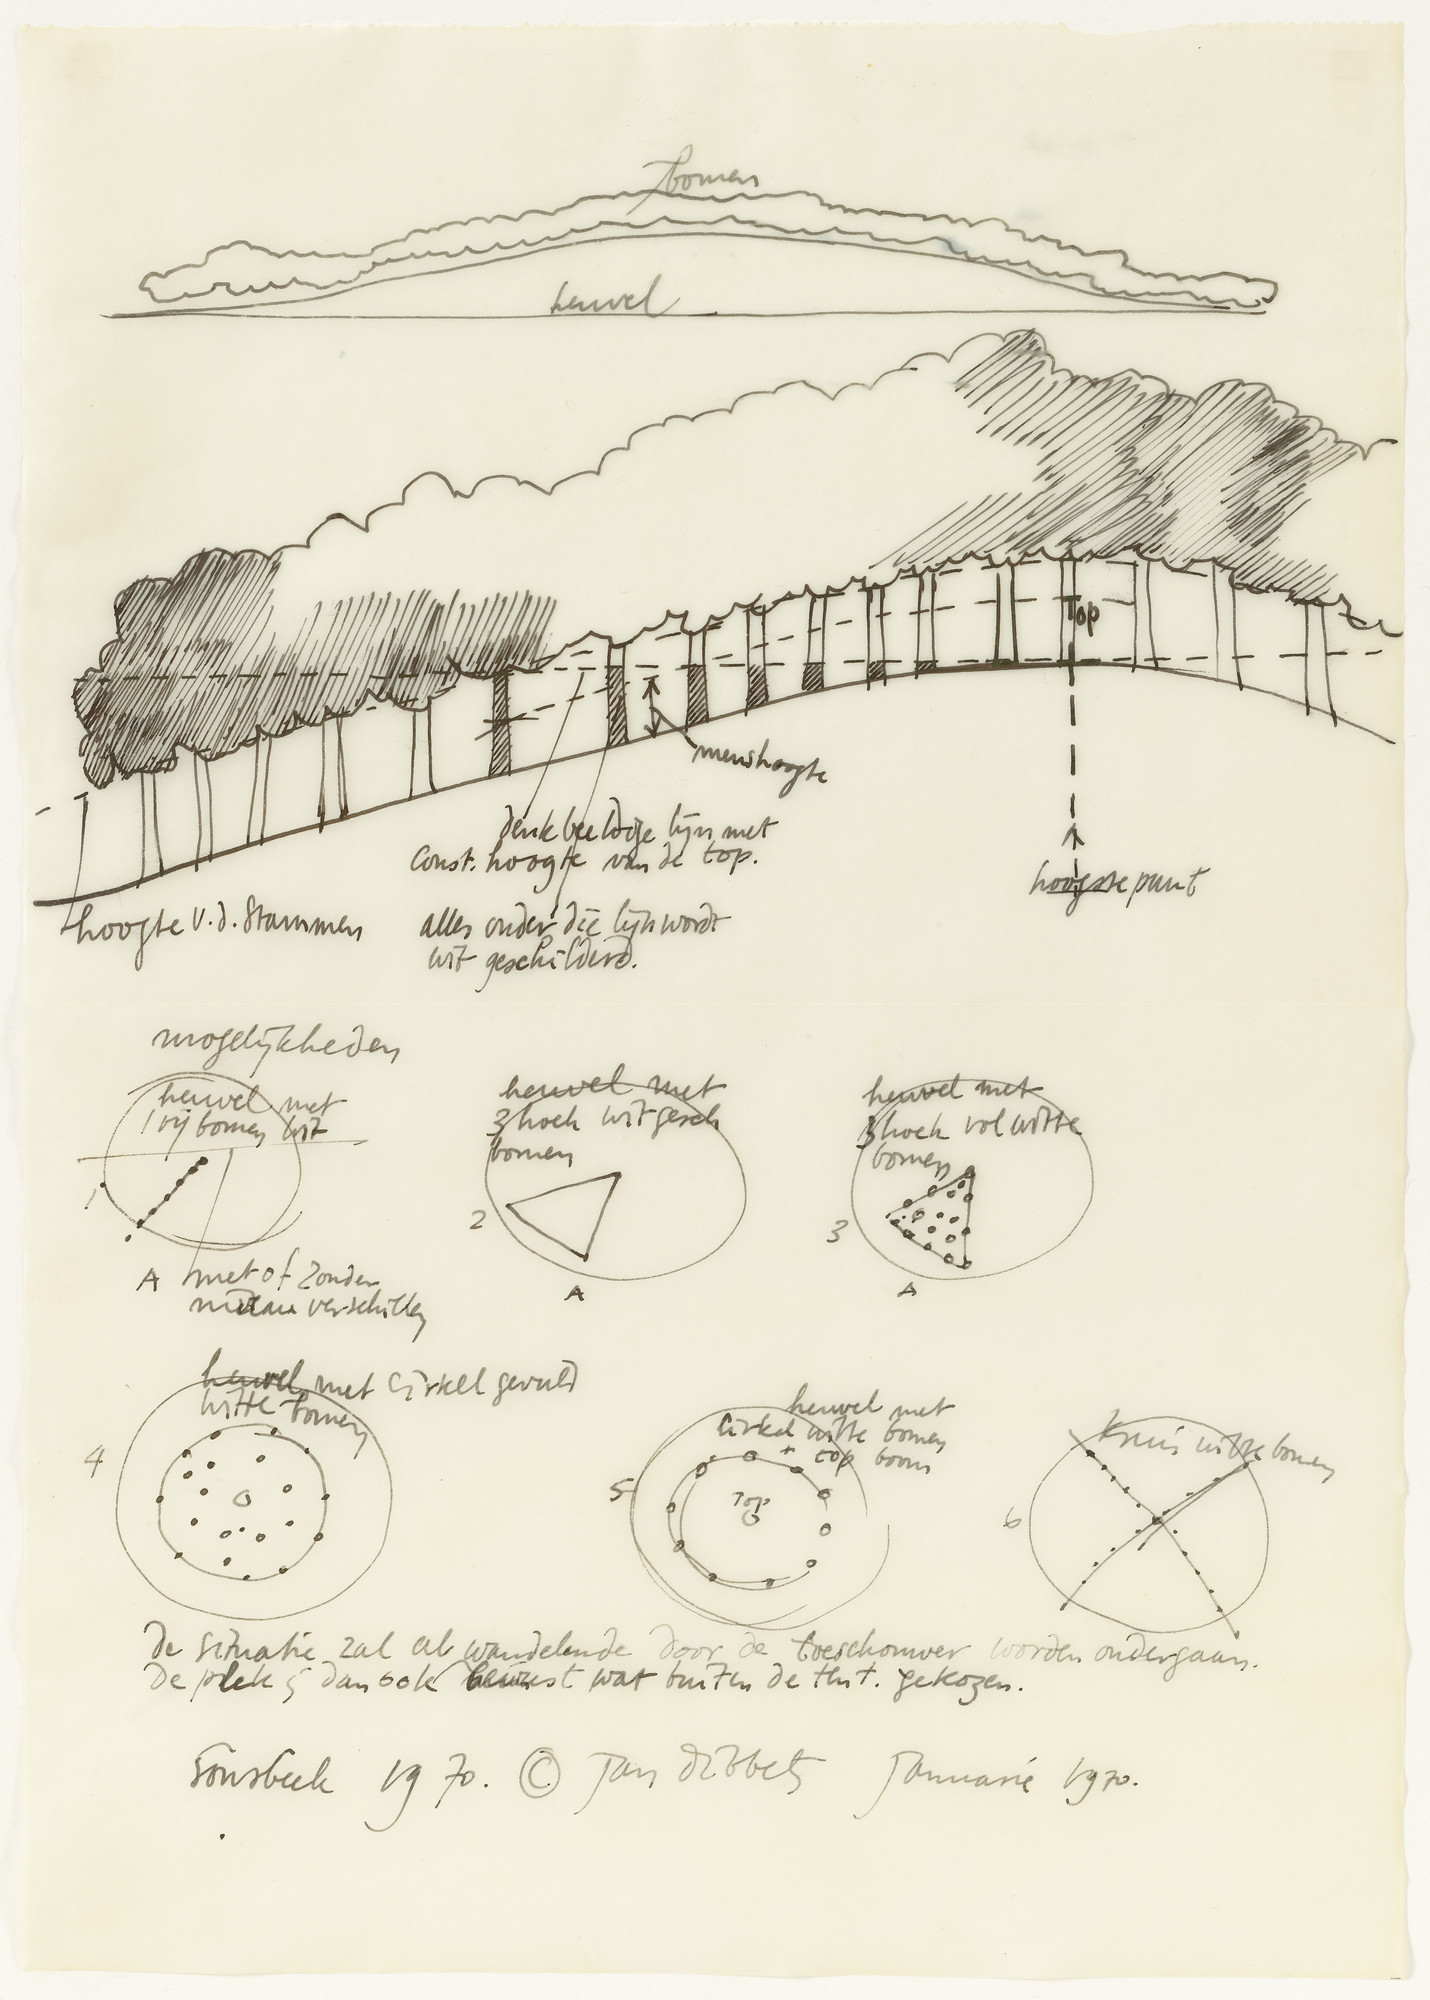 bomen
heuvel
Top
menshoogte
denkbeeldige lijn met
const. hoogte van de top.
hoogste punt
hoogte v.d. stammen
alles onder die lijn wordt
wit geschilderd.
mogelijkheden
heuvel met
1 rij bomen wit
1
A
met of zonder
niveau verschillen
heuvel met
3hoek witgesch
bomen
2
A
heuvel met
3hoek vol witte
bomen
3
A
heuvel met cirkel gevuld
witte bomen
4
heuvel met
cirkel witte bomen
+ top boom
5
Top
kruis witte bomen
6
De situatie zal al wandelende door de toeschouwer worden ondergaan.
De plek is dan ook bewust wat buiten de tent. gekozen.
Sonsbeek 1970. © Jan Dibbets Januarie 1970.